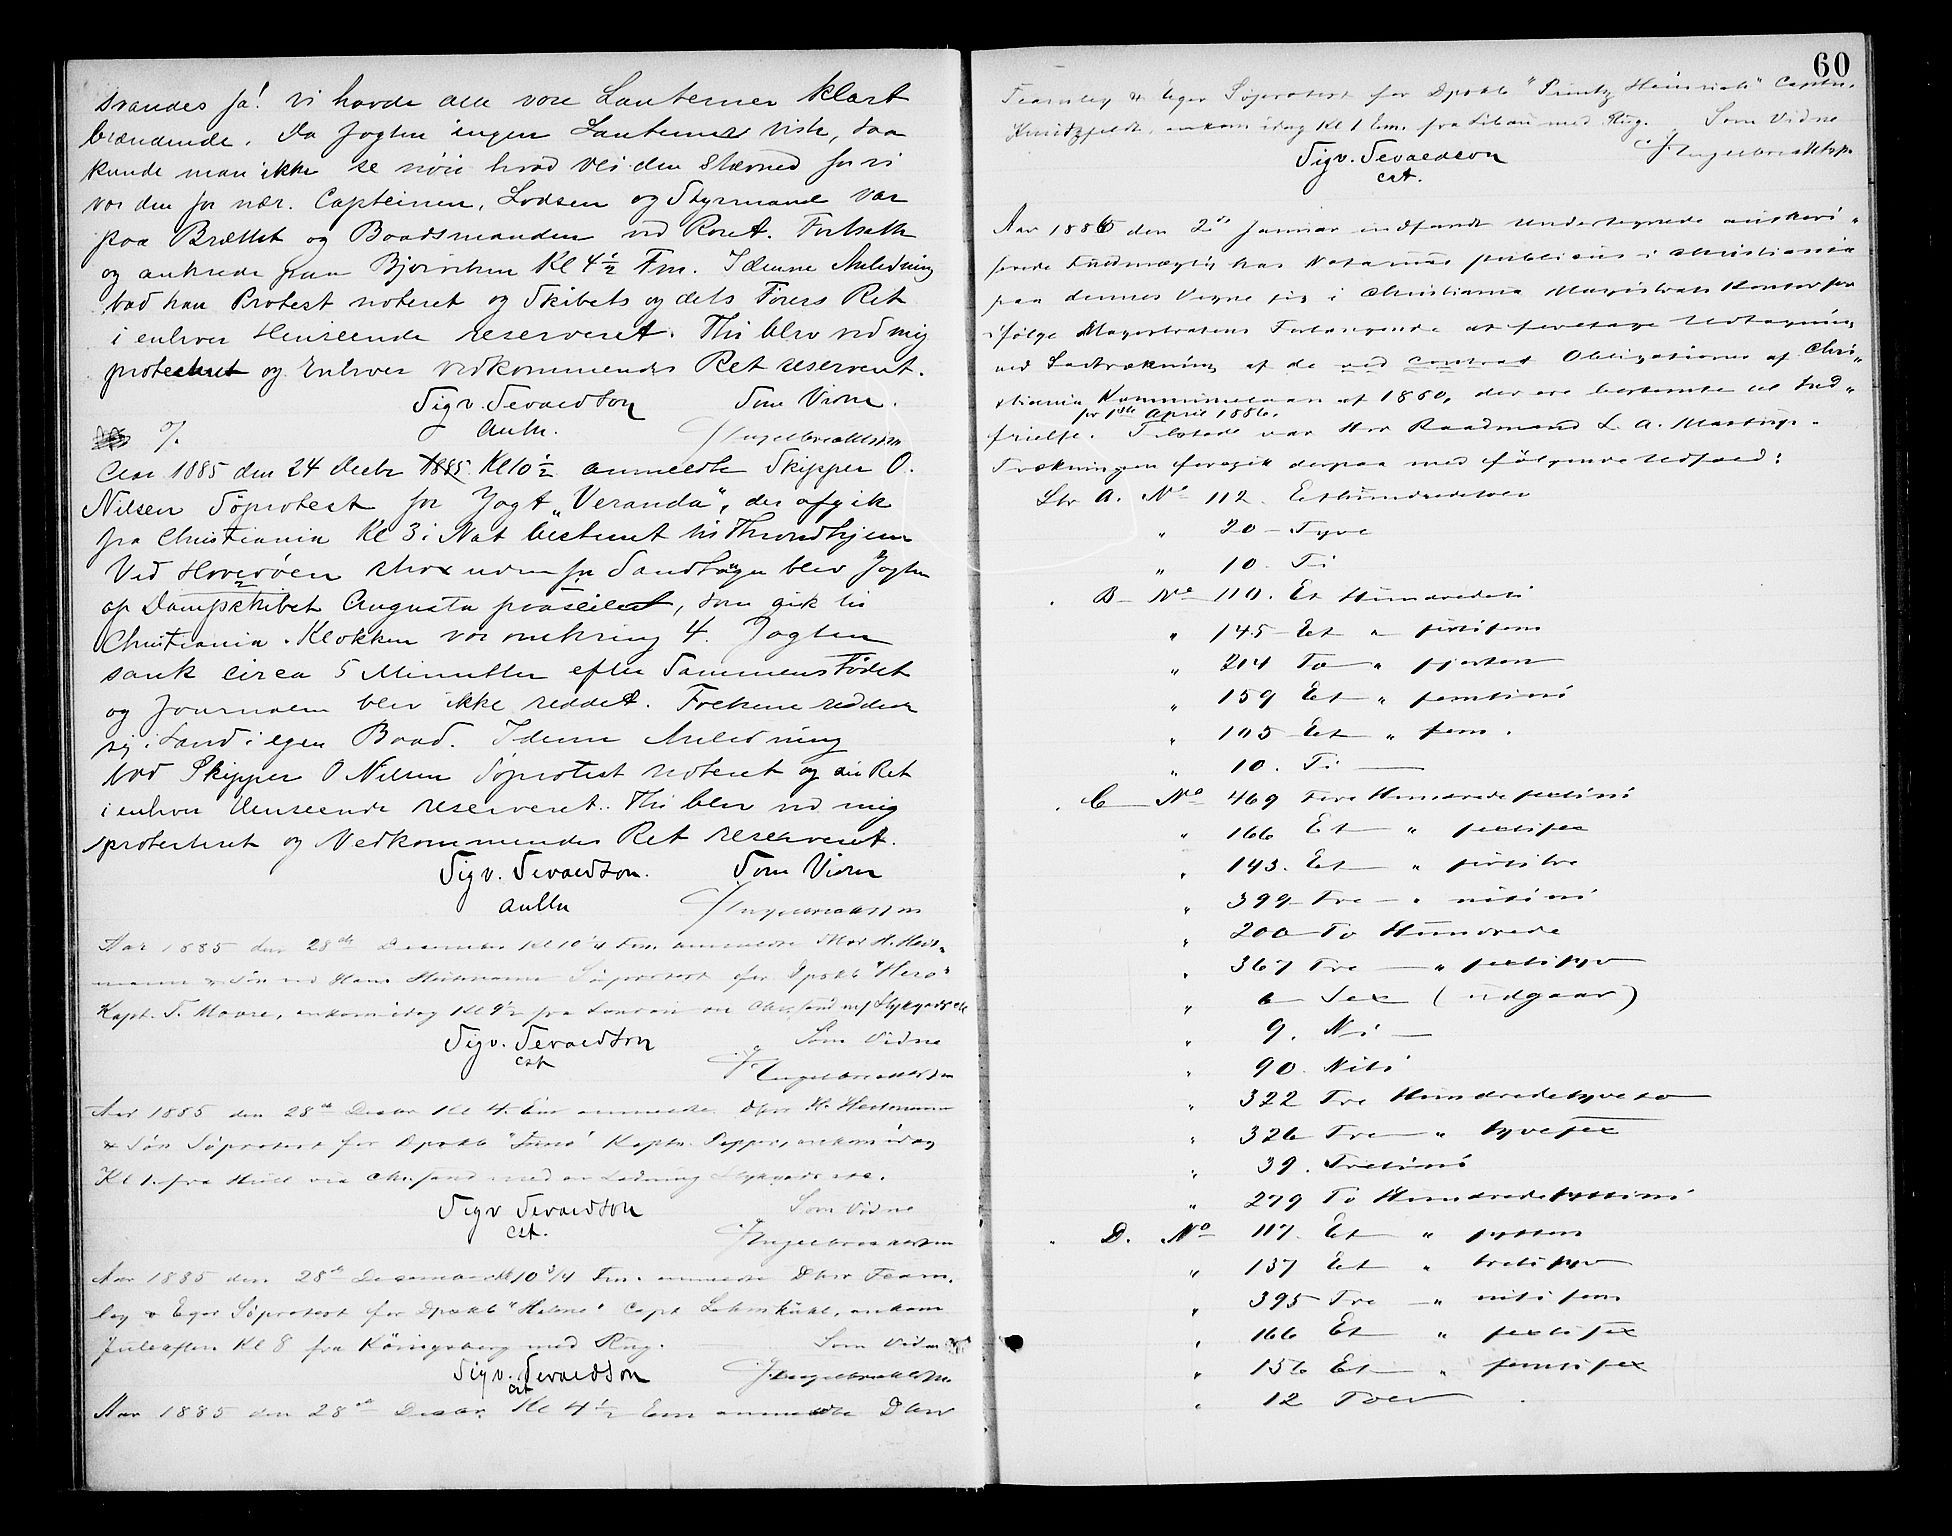 svandes ja! vi havde alle vore Lanterner klart
brændende. Da Jagten ingen Lanterner viste, saa
kunde man ikke se nøie hvad vei den stævned før vi
var den for nær. Capteinen, Lodsen og Styrmand var
paa Brættet og Baadsmanden ved Roret. Fortsatte
og ankrede paa Bjørviken Kl 4½ Fm. I denne Anledning
bad han Protest noteret og Skibets og dets Førers Ret
i enhver Henseende reserveret. Thi blev ved mig
protesteret og Enhver vedkommendes Ret reserveret.
Sigv. Sevaldson Som Vidne.
Aar 1885 den 24 Decbr 1885 Kl 10½ anmeldte Skipper O.
Nilsen Søprotest for Jagt „Veranda", der afgik
fra Christiania Kl 3 i Nat bestemt til Throndhjem
Ved Hovedøen strax uden for Sandtangen blev Jagten
af Dampskibet Augusta paaseilet, som gik til
Christiania. Klokken var omkring 4. Jagten
sank circa 5 Minutter efter Sammenstødet
og Journalen blev ikke reddet. Folkene redded
sig i Land i egen Baad. I denne Anledning
bad Skipper O Nilsen Søprotest noteret og sin Ret
i enhver Henseende reserveret. Thi blev ved mig
protesteret og Vedkommendes Ret reserveret.
Sigv. Sevaldson. Som Vidne
J Engelbrektsen
Aar 1885 den 28de December Kl 10¼ Fm. anmeldte d'Hrr H. Heit-
mann & Søn ved Hans Heitmann Søprotest for Dpskb "Hero"
Kapt. T. Moore, ankom idag Kl 9½ fra London via Chr.sand m/ Stykgods etc
Sigv. Sevaldson Som Vidne
cst J Engelbrektsen
Aar 1885 den 28de Decbr Kl 4. Em anmeldte d'Hrr H. Heitmann
& Søn Søprotest for Dpskb "Juno" Kaptn. Pepper, ankom idag
Kl 1. fra Hull via Chr.sand med en Ladning Stykgods etc.
Sigv Sevaldson Som Vidne
cst. J Engelbrektsen
Aar 1885 den 28de December Kl 10¾ Fm. anmeldte d'Hrr Fearn-
ley & Eger Søprotest for Dpskb "Helene" Capt Lehmkuhl, ankom
Juleaften Kl 8 fra Königsberg med Rug. Som Vidne
Sigv. Sevaldson J Engelbrektsen
cst
Aar 1885 den 28de Decbr. Kl 4½ Em anmeldte d'Hrr
60
Fearnley & Eger Søprotest for Dpskb "Printz Heinrich" Captn.
ankom idag Kl 1 Em. fra Libau med Rug. Som Vidne
Sigv. Sevaldson J Engelbrektsen
cst.
Aar 1886 den 2de Januar indfandt undertegnede autkori-
serede Fuldmægtig hos Notarius publicus i Christiania
paa dennes Vegne sig i Christiania Magistrats Kontor for
ifølge Magistratens Forlangende at foretage Udtagning
ved Lodtrækning af de Obligationer af Chri-
stiania Kommunelaan af 1880, der ere bestemte til Ind-
pr 1ste April 1886.
frielse. Tilstede var Hr Raadmand L. A. Mastrup.
Trækningen foregik derpaa med følgende Udfald:
Ltr A. No 112. Ethundredetolv
" 20 - Tyve
" 10. Ti
" B No 110. Et Hundredeti
" 145 - Et " førtifem
" 214 To " fjorten
" 159 Et " femtini
" 105 Et " fem.
" 10. Ti
" C No 469 Fire Hundredesextini
" 166 Et " sextisex
" 143. Et " førtitre
" 399 Tre " nitini
" 200 To Hundrede
" 367 Tre " sextisyv
" 6 Sex (udgaar)
" 9. Ni
" 90. Niti
" 322 Tre Hundredetyveto
" 326 Tre " tyvesex
" 39. Trettini
" 279 To Hundredesyttini
" D. No 117. Et " sytten
" 137 Et " tretisyv
" 395 Tre " nitifem
" 166 Et " sextisex
" 156 Et " femtisex
" 12 Tolv